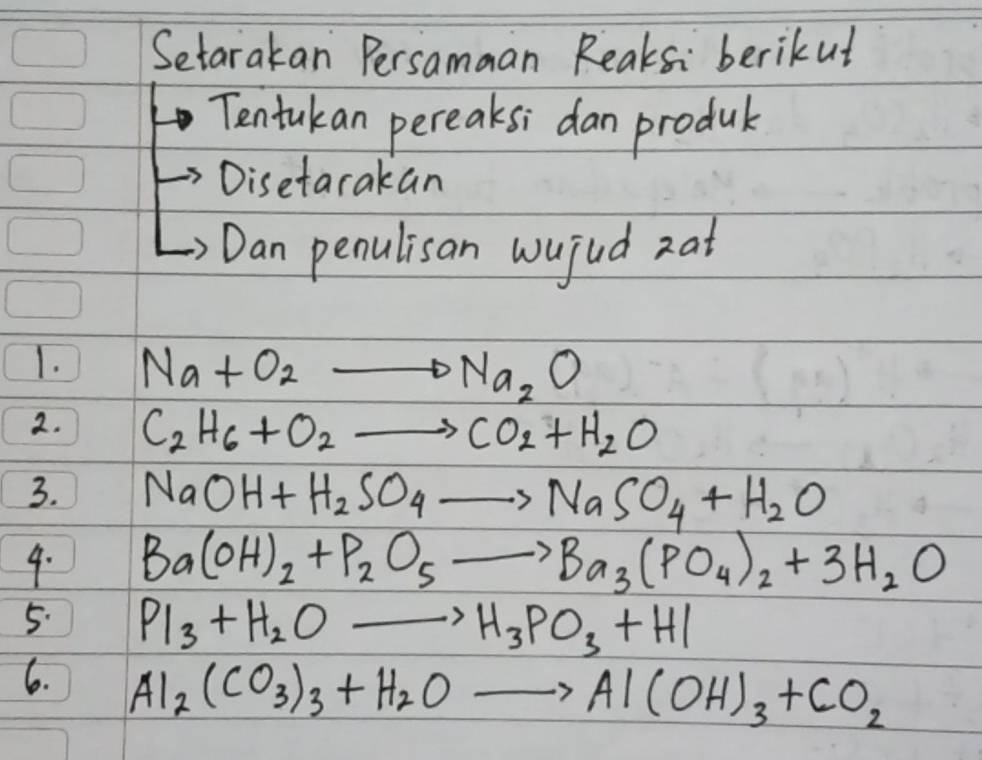 Setarakan Persamaan Reaksi berikut
→ Tentukan pereaksi dan produk
→ Disetarakan
→ Dan penulisan wujud zat
1. Na + O₂ → Na₂O
2. C₂H₆ + O₂ → CO₂ + H₂O
3. NaOH + H₂SO₄ → NaSO₄ + H₂O
4. Ba(OH)₂ + P₂O₅ → Ba₃(PO₄)₂ + 3H₂O
5. PI₃ + H₂O → H₃PO₃ + HI
6. Al₂(CO₃)₃ + H₂O → Al(OH)₃ + CO₂